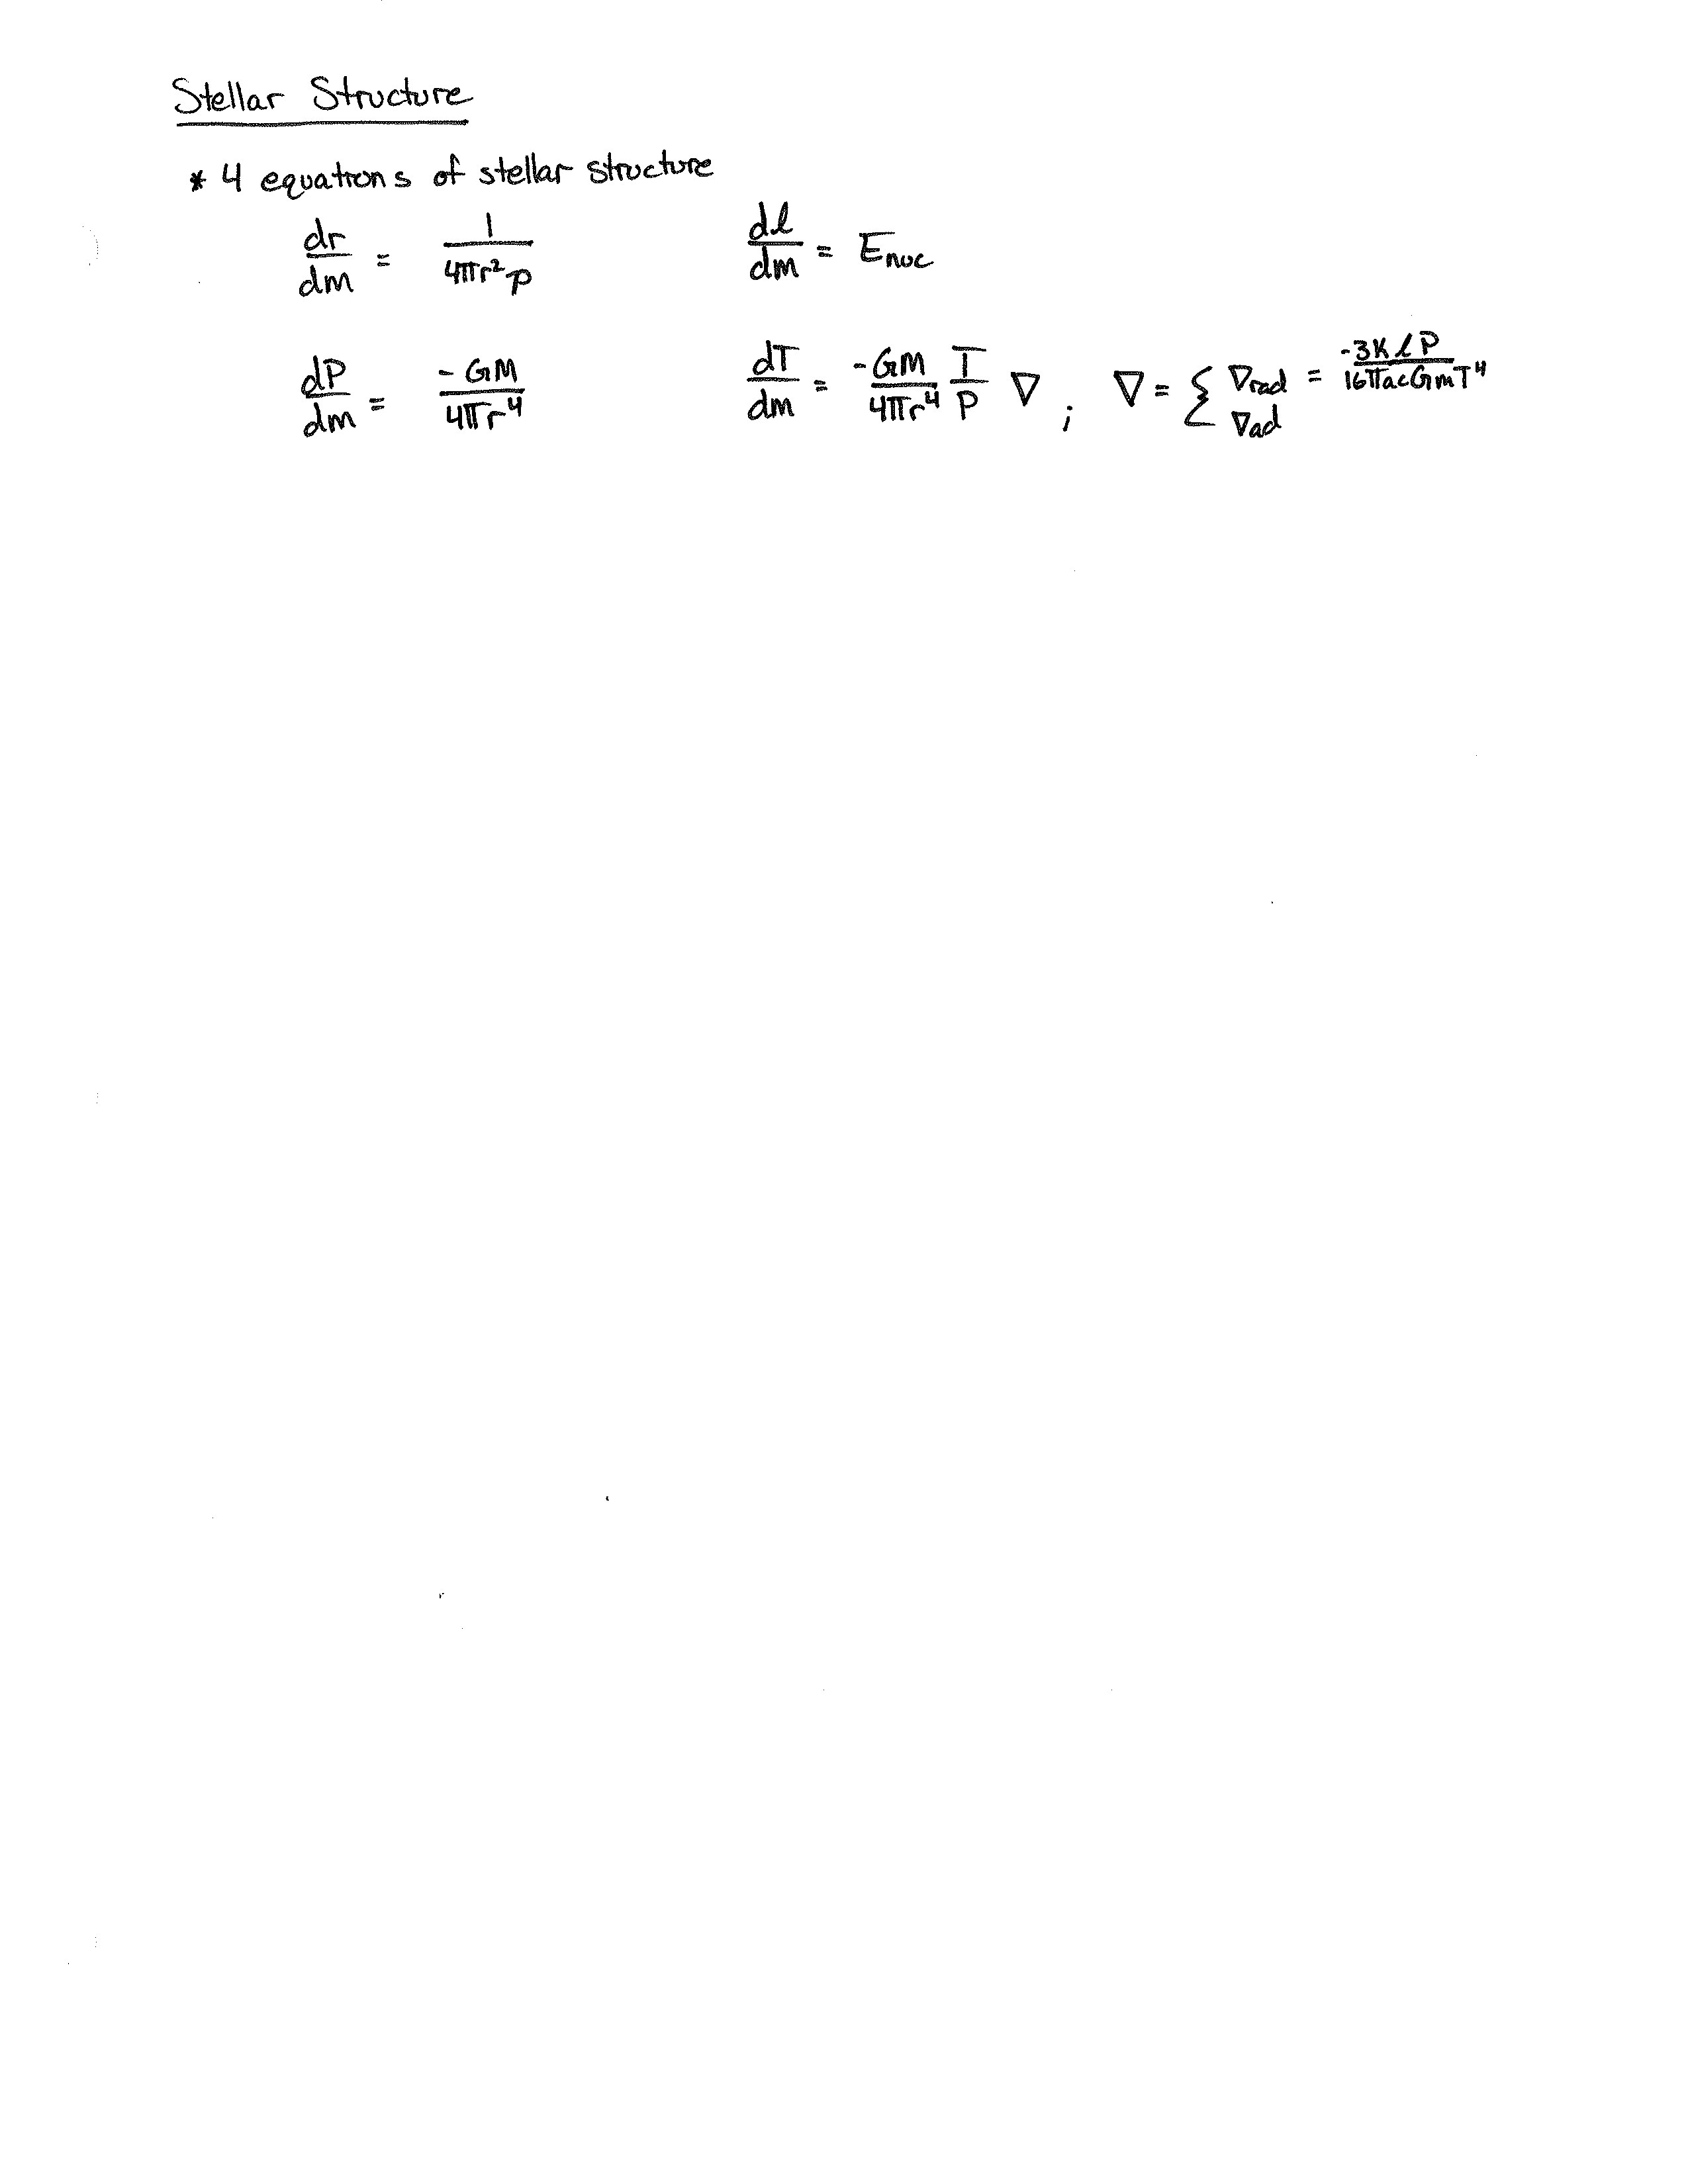 Stellar Structure
* 4 equations of stellar structure
dr/dm = 1/(4πr²ρ)    dl/dm = Enuc
dP/dm = -GM/(4πr⁴)    dT/dm = -GM/(4πr⁴) T/P ∇ ; ∇ = { ∇rad = -3KlP/(16πacGmT⁴)
∇ad